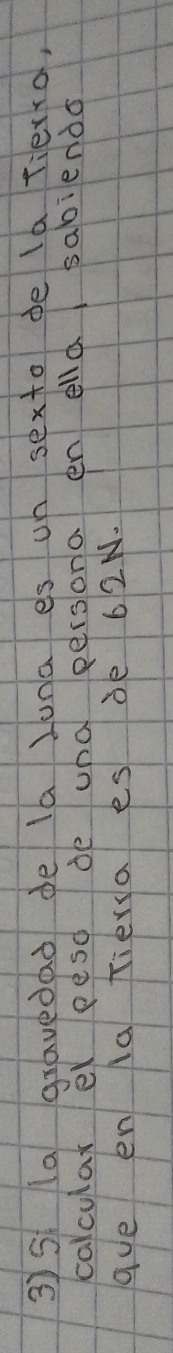 3) Si la gravedad de la Luna es un sexto de la Tierra,
calcular el peso de una persona en ella, sabiendo
que en la Tierra es de 62N.